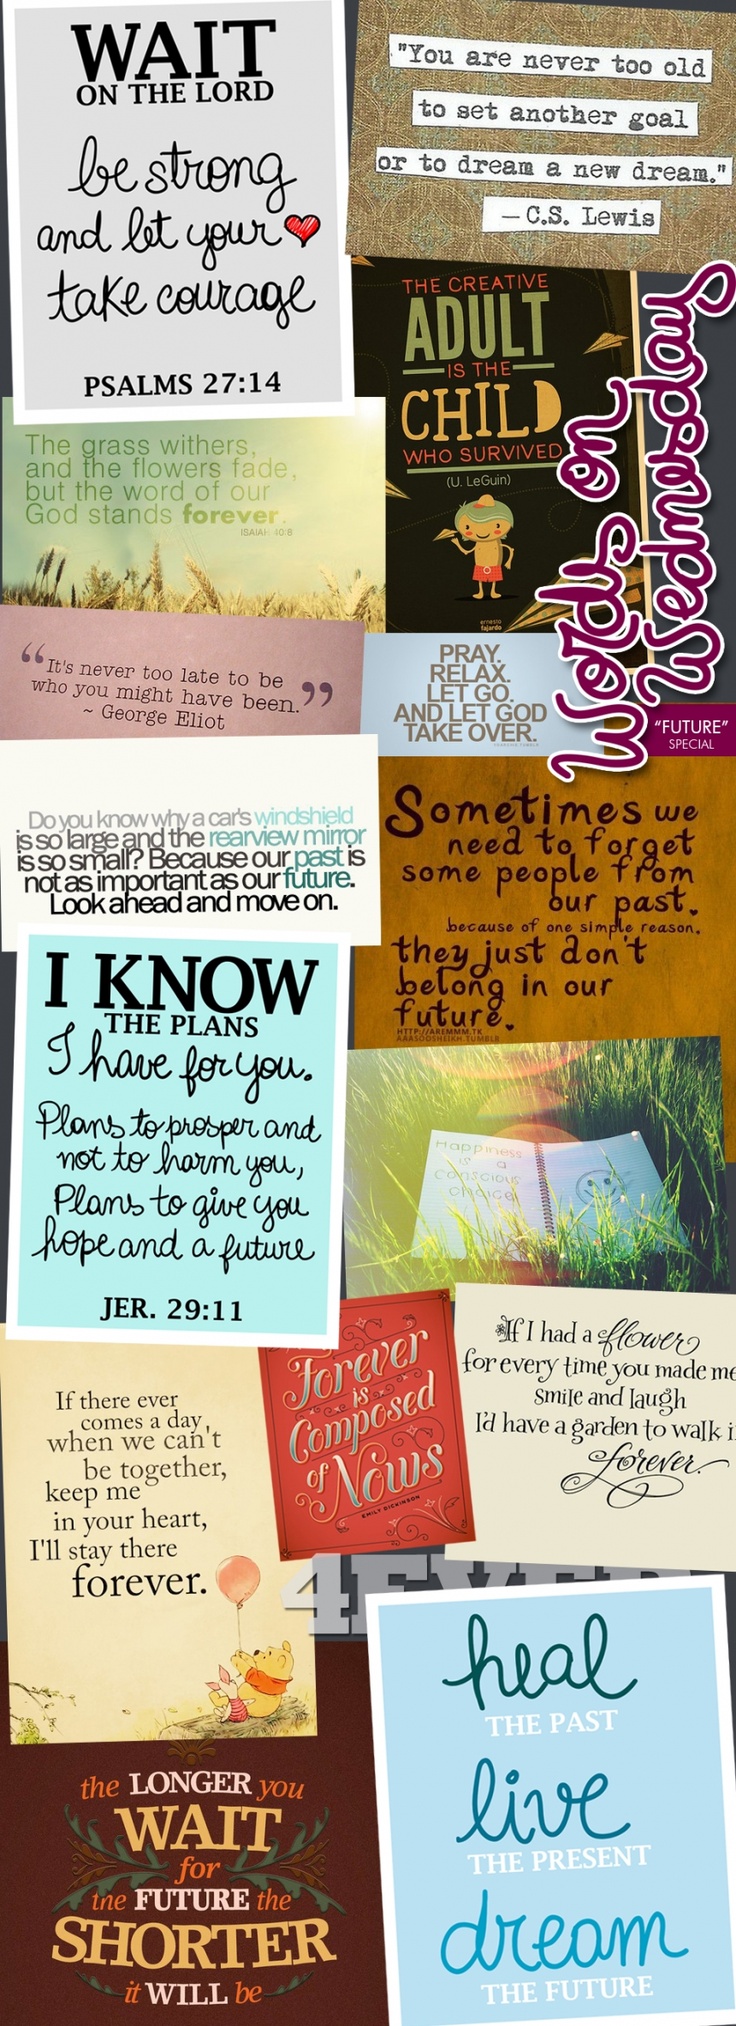 WAIT
ON THE LORD
be strong
and let your
take courage
PSALMS 27:14
"You are never too old
to set another goal
or to dream a new dream."
— C.S. Lewis
THE CREATIVE
ADULT
IS THE
CHILD
WHO SURVIVED
(U. LeGuin)
ernesto
fajardo
Words on
Wednesdays
"FUTURE"
SPECIAL
The grass withers,
and the flowers fade,
but the word of our
God stands forever.
ISAIAH 40:8
"It's never too late to be
who you might have been."
~ George Eliot
PRAY.
RELAX.
LET GO.
AND LET GOD
TAKE OVER.
Do you know why a car's windshield
is so large and the rearview mirror
is so small? Because our past is
not as important as our future.
Look ahead and move on.
Sometimes we
need to forget
some people from
our past.
because of one simple reason.
they just don't
belong in our
future.
HTTP://AREMMM.TK
AAASOOSHEIKH.TUMBLR
I KNOW
THE PLANS
I have for you.
Plans to prosper and
not to harm you,
Plans to give you
hope and a future
JER. 29:11
Happiness
is a
conscious
choice!
If there ever
comes a day
when we can't
be together,
keep me
in your heart,
I'll stay there
forever.
Forever
is
Composed
of Nows
EMILY DICKINSON
If I had a flower
for every time you made me
smile and laugh
I'd have a garden to walk i
forever.
4EVER
heal
THE PAST
live
THE PRESENT
dream
THE FUTURE
the LONGER you
WAIT
for
the FUTURE the
SHORTER
it WILL be